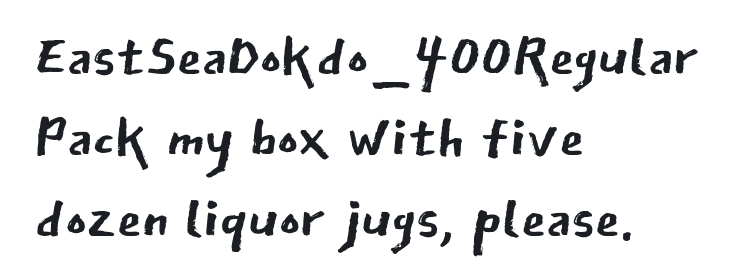 EastSeaDokdo_400Regular
Pack my box with five
dozen liquor jugs, please.